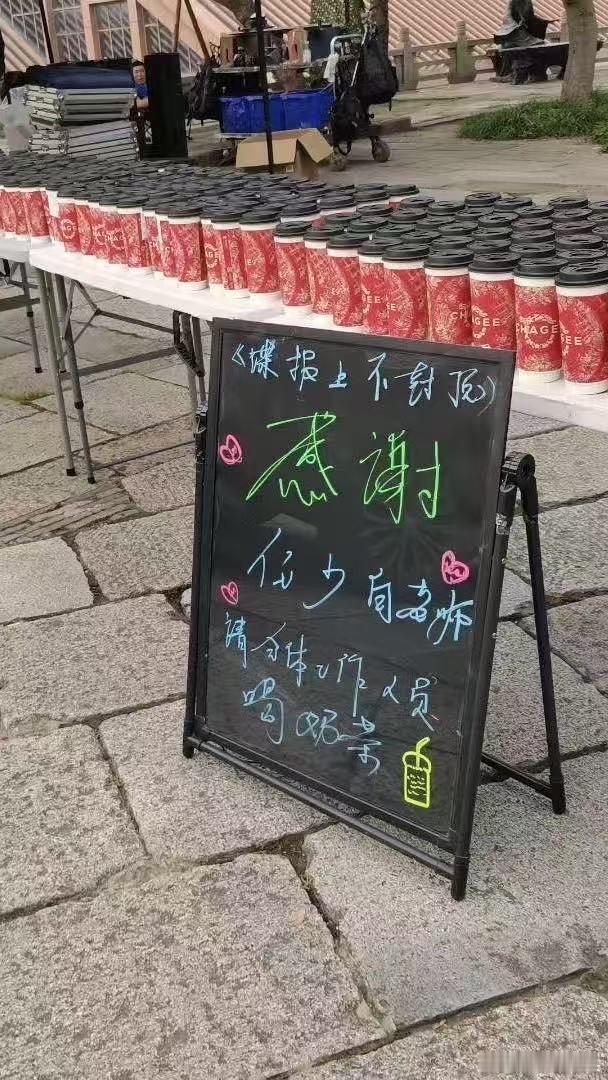 CHAGEE
《谍报上不封顶》
感谢
任少白老师
请全体工作人员
喝奶茶